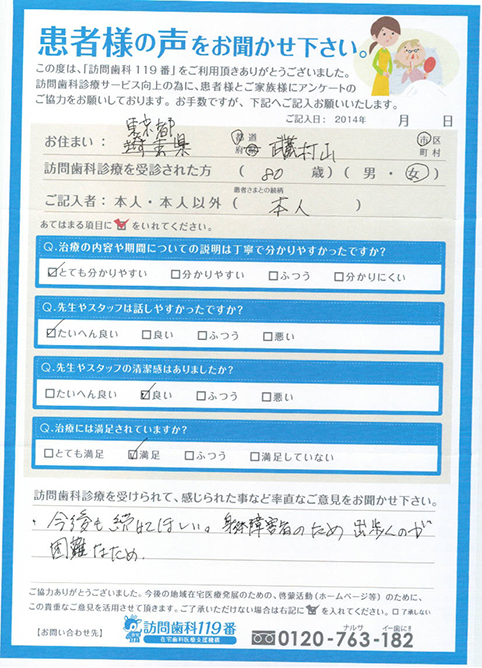 患者様の声をお聞かせ下さい。
この度は、「訪問歯科119番」をご利用頂きありがとうございました。
訪問歯科診療サービス向上の為に、患者様とご家族様にアンケートの
ご協力をお願いしております。お手数ですが、下記へご記入お願いいたします。
ご記入日: 2014年 月 日
東京都
お住まい: 埼玉県 都道府県 武蔵村山 市区町村
訪問歯科診療を受診された方 ( 80 歳) (男・女)
患者さまとの続柄
ご記入者:本人・本人以外( 本人 )
あてはまる項目に☑をいれてください。
Q.治療の内容や期間についての説明は丁寧で分かりやすかったですか?
☑とても分かりやすい □分かりやすい □ふつう □分かりにくい
Q.先生やスタッフは話しやすかったですか?
☑たいへん良い □良い □ふつう □悪い
Q.先生やスタッフの清潔感はありましたか?
□たいへん良い ☑良い □ふつう □悪い
Q.治療には満足されていますか?
□とても満足 ☑満足 □ふつう □満足していない
訪問歯科診療を受けられて、感じられた事など率直なご意見をお聞かせ下さい。
・今後も続けてほしい。身体障害者のため出歩くのが
困難なため.
ご協力ありがとうございました。今後の地域在宅医療発展のための、啓蒙活動(ホームページ等)のために、
この貴重なご意見を活用させて頂きます。ご了承いただけない場合は右記に☑を入れてください。□了承しない
【お問い合わせ先】 訪問歯科119番
在宅歯科医療支援機構
ナルサ イー歯にき
0120-763-182